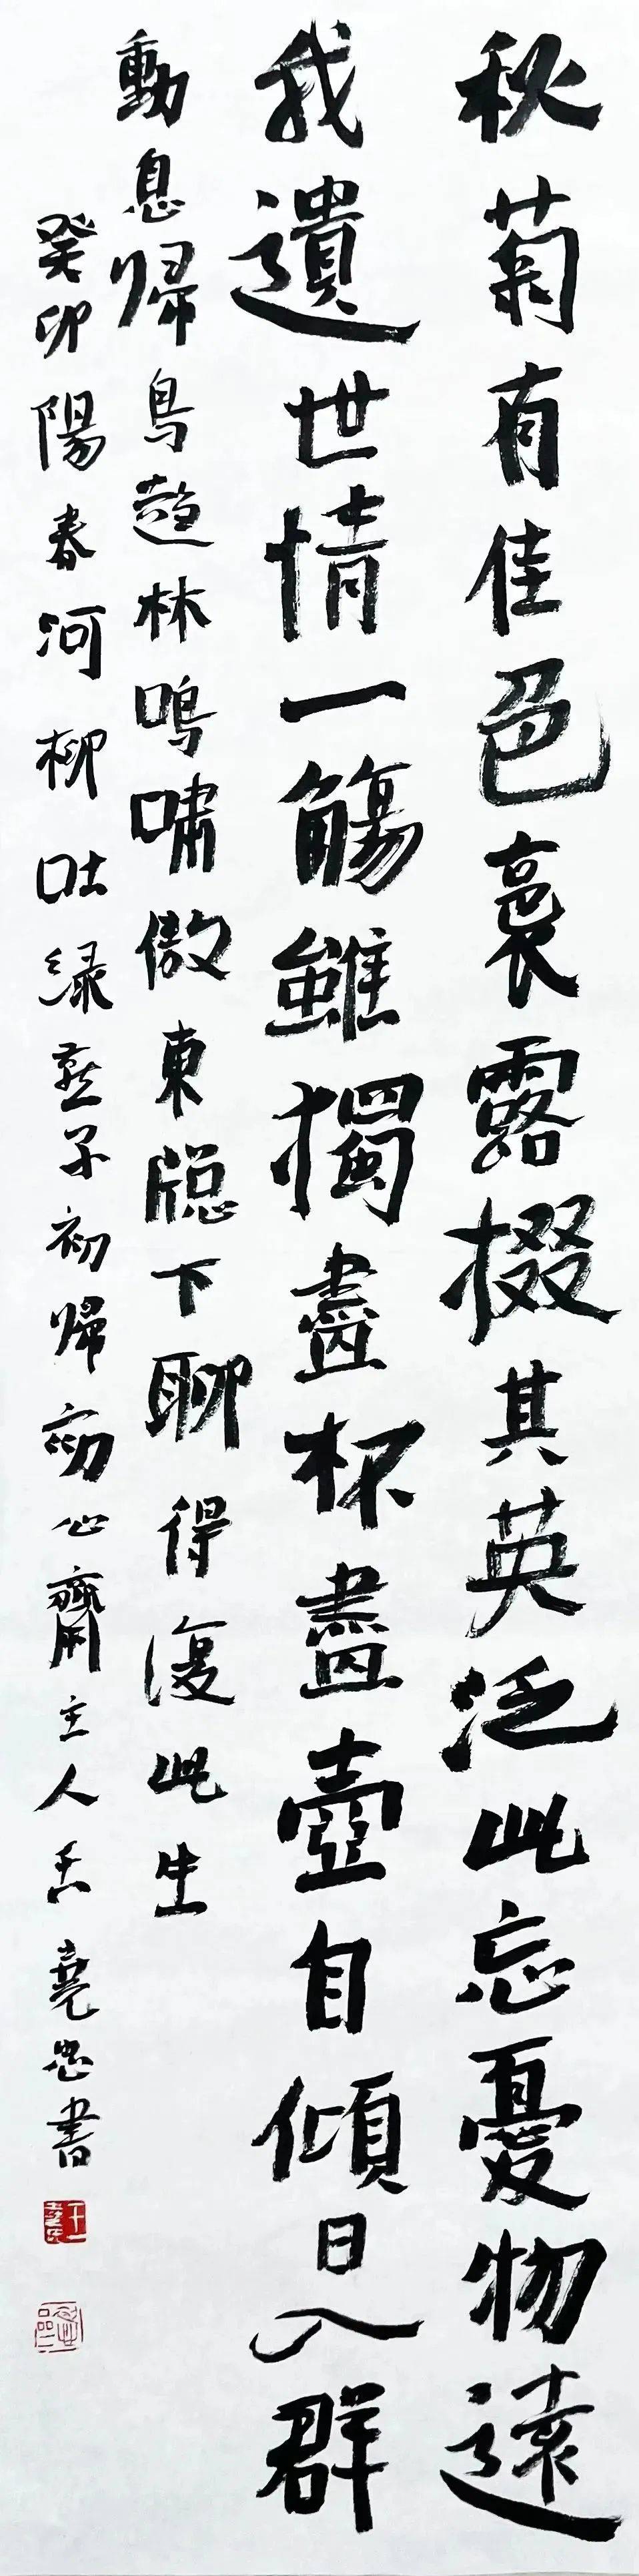 秋菊有佳色裛露掇其英泛此忘憂物遠
我遺世情一觴雖獨盡杯盡壺自傾日入群
動息帰鳥趨林鳴嘯傲東牕下聊得復此生
癸卯陽春河柳吐緑燕子初帰心齋主人堯忠書